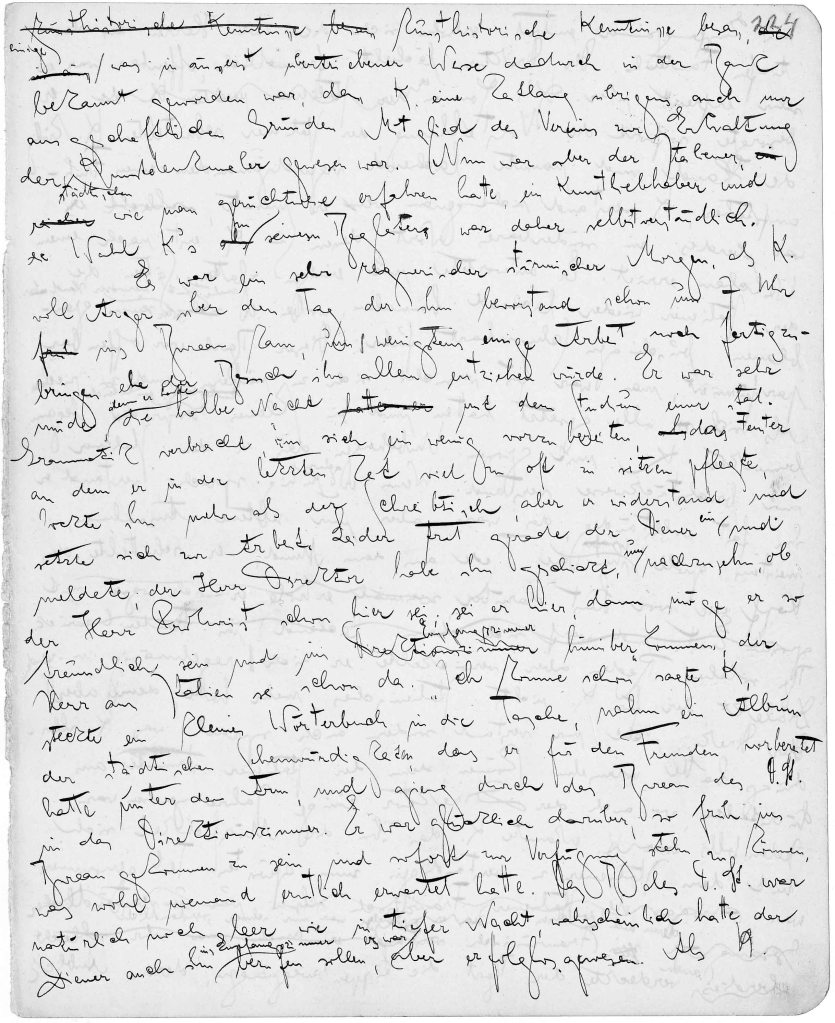 224
kunsthistorische Kenntnisse besass kunsthistorische Kenntnisse besass,
einige
was in äusserst übertriebener Weise dadurch in der Bank
bekannt geworden war, dass K. eine Zeitlang übrigens auch nur
aus geschäftlichen Gründen Mitglied des Vereins zur Erhaltung
der Kunstdenkmäler gewesen war. Nun war aber der Italiener
städtischen
wie man gerüchtweise erfahren hatte ein Kunstliebhaber und
die Wahl K's zu seinem Begleiter war daher selbstverständlich.
Es war ein sehr regnerischer stürmischer Morgen, als K.
voll Ärger über den Tag der ihm bevorstand schon um 7 Uhr
früh ins Bureau kam, um wenigstens einige Arbeit noch fertigzu-
bringen ehe der Besuch ihn allem entziehen würde. Er war sehr
müde denn er hatte die halbe Nacht hatte er mit dem Studium einer ital.
Grammatik verbracht um sich ein wenig vorzubereiten, das Fenster
an dem er in der letzten Zeit viel zu oft zu sitzen pflegte,
lockte ihn mehr als der Schreibtisch, aber er widerstand und
setzte sich zur Arbeit. Leider trat gerade der Diener ein und
meldete, der Herr Direktor habe ihn geschickt, um nachzusehn, ob
der Herr Prokurist schon hier sei; sei er hier, dann möge er so
freundlich sein und ins Direktionszimmer Empfangszimmer hinüberkommen, der
Herr aus Italien sei schon da. „Ich komme schon" sagte K,
steckte ein kleines Wörterbuch in die Tasche, nahm ein Album
der städtischen Sehenswürdigkeiten, das er für den Fremden vorbereitet
hatte unter den Arm, und gieng durch das Bureau des D.St.
in das Direktionszimmer. Er war glücklich darüber, so früh ins
Bureau gekommen zu sein und sofort zur Verfügung stehn zu können,
was wohl niemand ernstlich erwartet hatte. Das B des D.St. war
natürlich noch leer wie in tiefer Nacht, wahrscheinlich hatte der
Diener auch ihn ins Empfangszimmer berufen sollen, es war aber erfolglos gewesen. Als K.